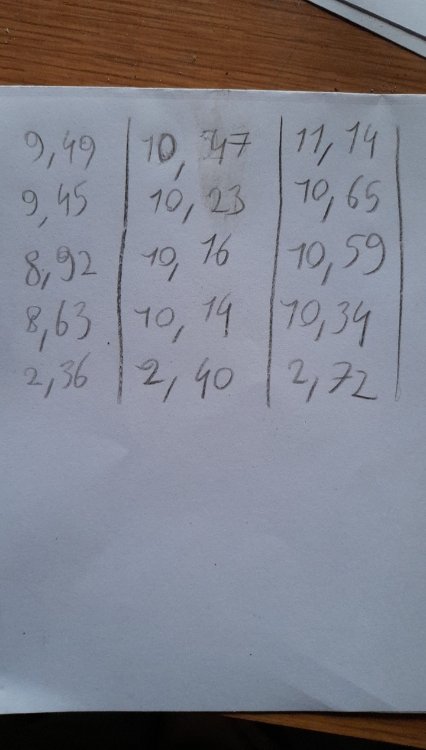 9,49 10,47 11,14
9,45 10,23 10,65
8,92 10,16 10,59
8,63 10,14 10,34
2,36 2,40 2,72